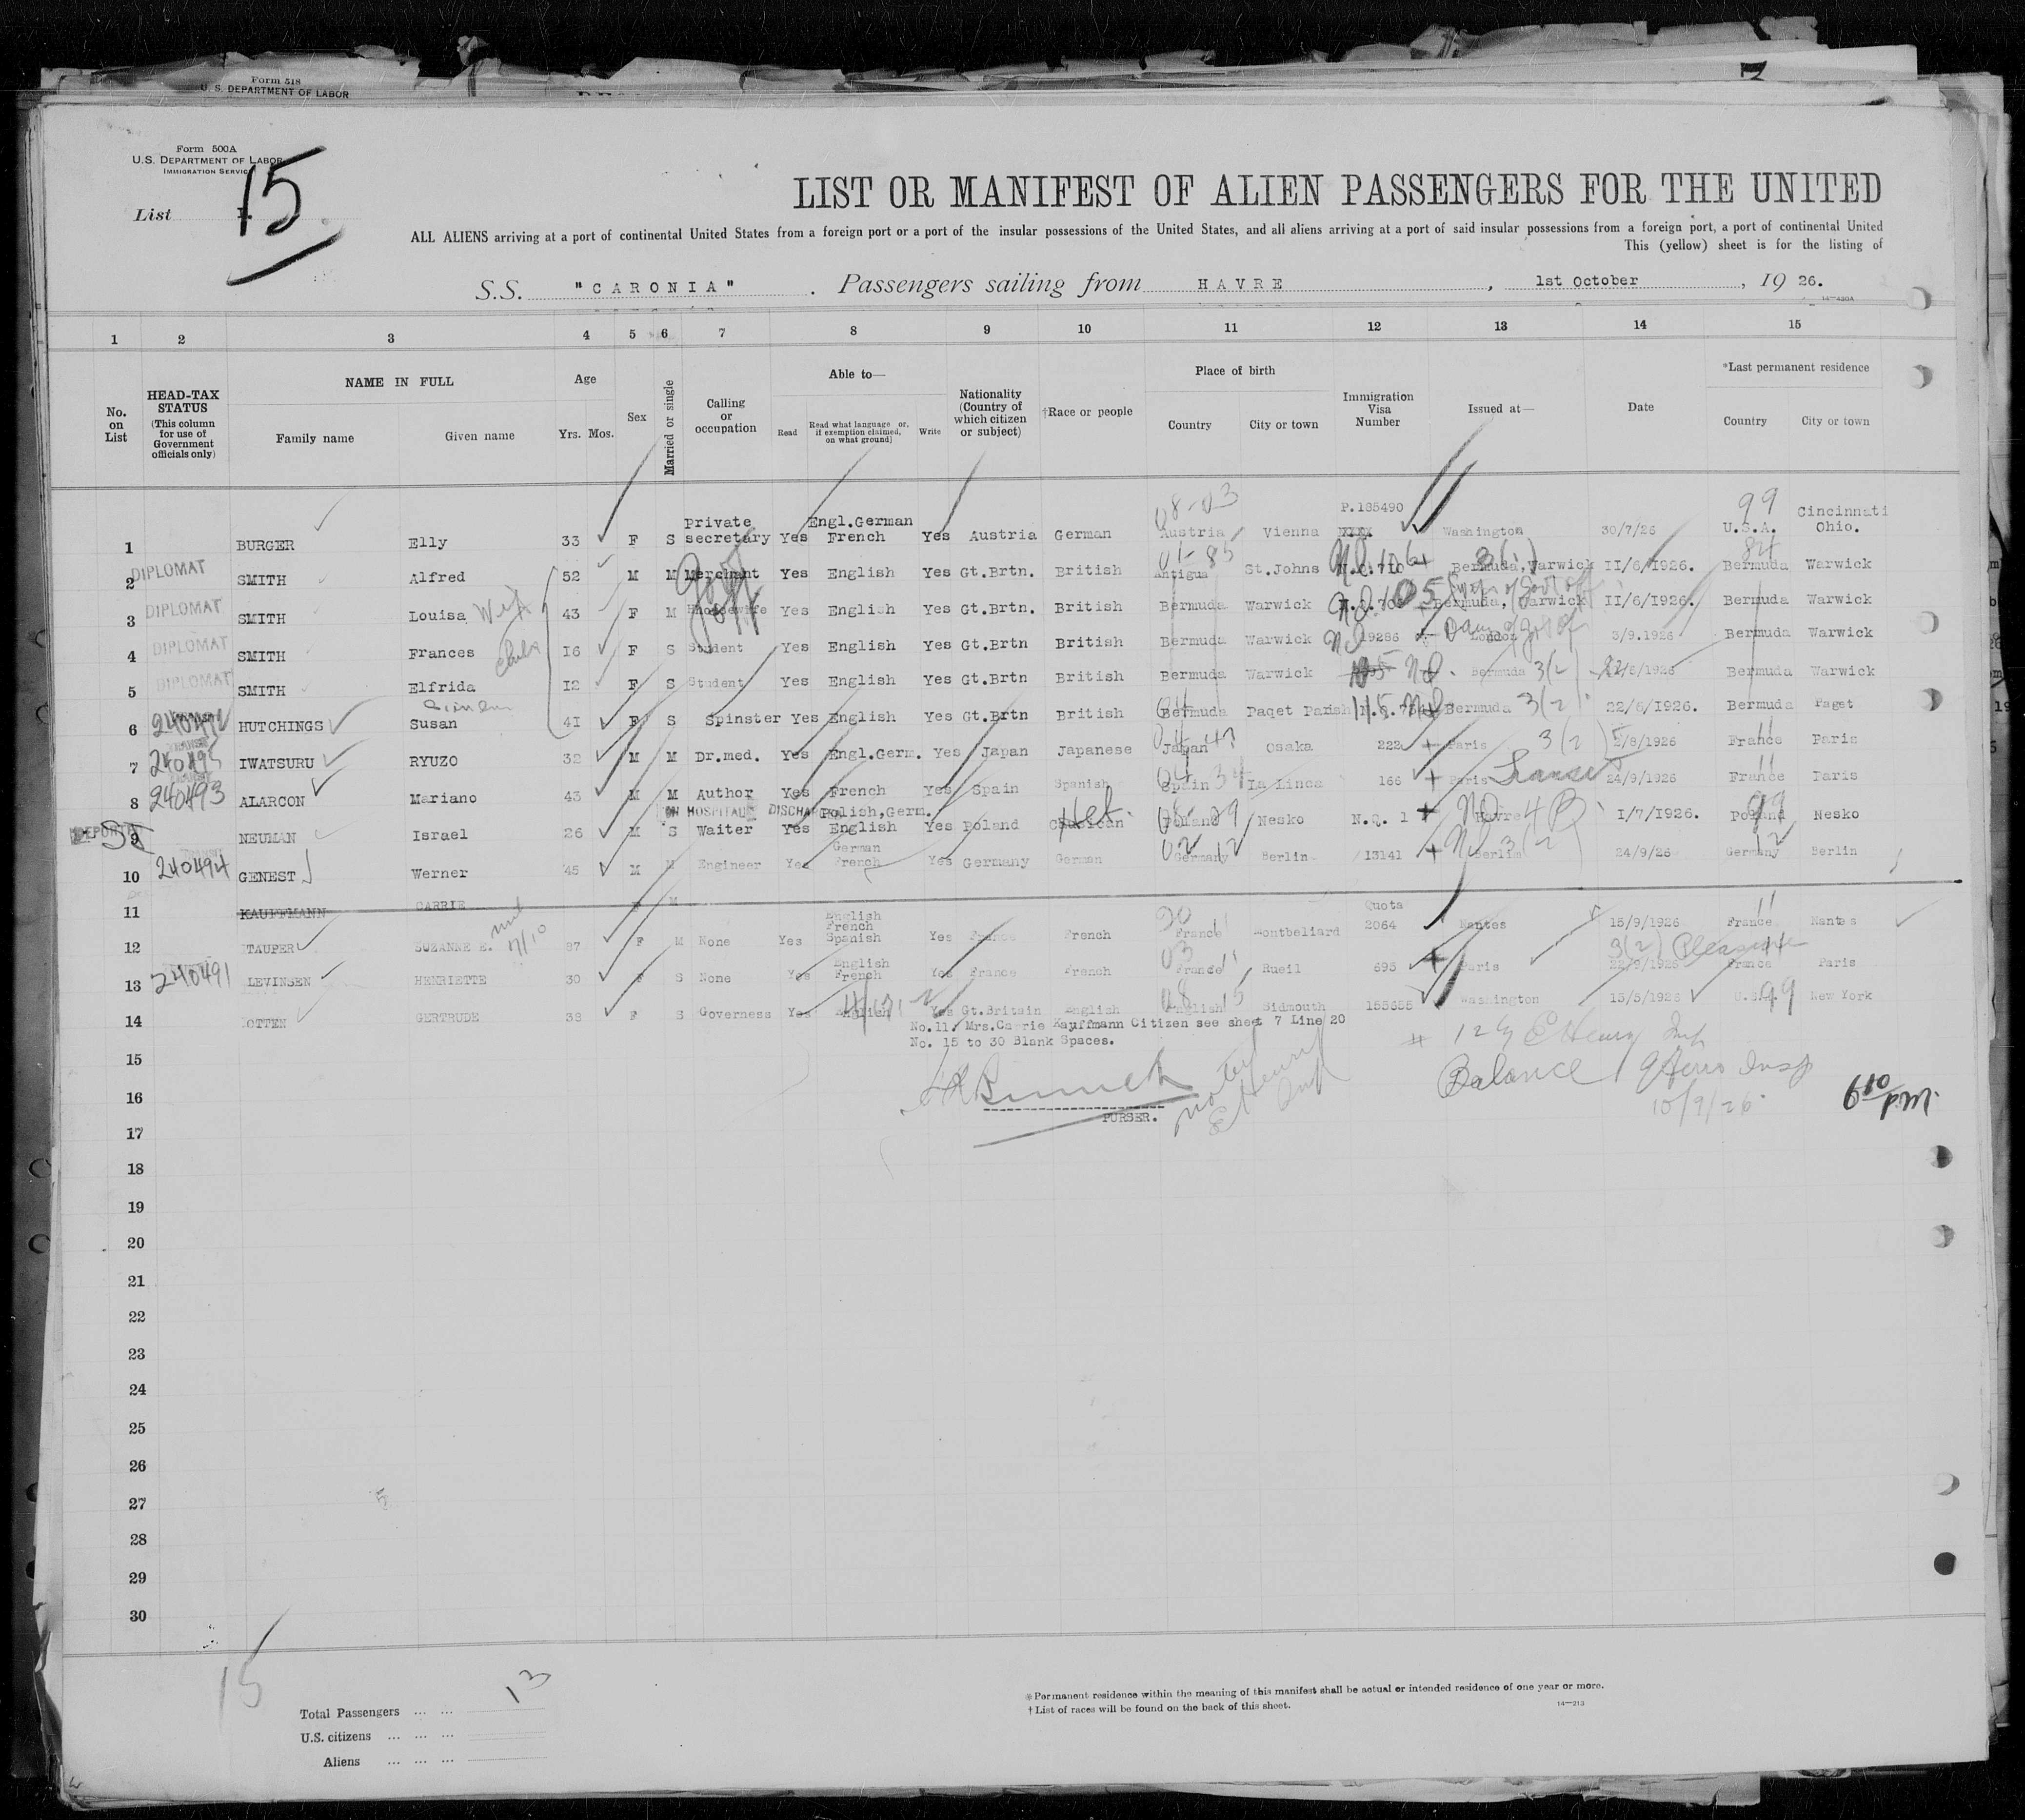 Form 518
U. S. DEPARTMENT OF LABOR
Form 500A
U.S. DEPARTMENT OF LABOR
IMMIGRATION SERVICE
List 15
LIST OR MANIFEST OF ALIEN PASSENGERS FOR THE UNITED
ALL ALIENS arriving at a port of continental United States from a foreign port or a port of the insular possessions of the United States, and all aliens arriving at a port of said insular possessions from a foreign port, a port of continental United
This (yellow) sheet is for the listing of
S.S. "CARONIA". Passengers sailing from HAVRE, 1st October, 19 26.
14—430A
1 2 3 4 5 6 7 8 9 10 11 12 13 14 15
No. on List
HEAD-TAX STATUS (This column for use of Government officials only)
NAME IN FULL Family name Given name
Age Yrs. Mos.
Sex
Married or single
Calling or occupation
Able to— Read Read what language or, if exemption claimed, on what ground] Write
Nationality (Country of which citizen or subject)
†Race or people
Place of birth Country City or town
Immigration Visa Number
Issued at—
Date
*Last permanent residence Country City or town
1 BURGER Elly 33 F S private secretary Yes Engl.German French Yes Austria German 08-03 Austria Vienna P.185490 Washington 30/7/26 99 U.S.A. Cincinnati Ohio.
2 DIPLOMAT SMITH Alfred 52 M M Merchant Yes English Yes Gt.Brtn. British Antigua St.Johns Bermuda, Warwick II/6/I926. Bermuda Warwick
3 DIPLOMAT SMITH Louisa Wife 43 F M Housewife Yes English Yes Gt.Brtn. British Bermuda Warwick Bermuda, Warwick II/6/I926. Bermuda Warwick
4 DIPLOMAT SMITH Frances I6 F S Student Yes English Yes Gt.Brtn British Bermuda Warwick 19286 London 3/9.1926 Bermuda Warwick
5 DIPLOMAT SMITH Elfrida I2 F S Student Yes English Yes Gt.Brtn British Bermuda Warwick Bermuda 3(2) Bermuda Warwick
6 240492 HUTCHINGS Susan 4I F S Spinster Yes English Yes Gt.Brtn British Bermuda Paget Parish Bermuda 3(2) 22/6/1926. Bermuda Paget
7 240495 IWATSURU RYUZO 32 M M Dr.med. Yes Engl.Germ. Yes Japan Japanese Japan Osaka 222 Paris 3(2) /8/1926 France Paris
8 240493 ALARCON Mariano 43 M M Author Yes French Yes Spain Spanish Spain La Linea 166 Paris 24/9/1926 France Paris
IN HOSPITAL DISCHARGED
9 NEUMAN Israel 26 M S Waiter Yes Polish,Germ. English Yes Poland Heb. Poland Nesko N.Q. 1 Havre 1/7/1926. Poland Nesko
10 240494 GENEST Werner 45 M M Engineer Yes German French Yes Germany German Germany Berlin 13141 Berlin 3(2) 24/9/26 Germany Berlin
11 KAUFFMANN CARRIE F M
12 TAUPER SUZANNE E. 37 F M None Yes English French Spanish Yes France French France Montbeliard Quota 2064 Nantes 15/9/1926 France Nantes
3(2) Pleasure
13 240491 LEVINSEN HENRIETTE 30 F S None Yes English French Yes France French France Rueil 695 Paris 22/9/1926 France Paris
14 OTTEN GERTRUDE 38 F S Governess Yes English Yes Gt.Britain English English Sidmouth 155655 Washington 13/5/1926 U.S.A. New York
No.11. Mrs.Carrie Kauffmann Citizen see sheet 7 Line 20
No. 15 to 30 Blank Spaces.
15
16
Balance Insp
10/9/26
6 10 P.M.
PURSER.
17
18
19
20
21
22
23
24
25
26
27
28
29
30
15
13
Total Passengers ... ...
U.S. citizens ... ... ...
Aliens ... ... ...
*Permanent residence within the meaning of this manifest shall be actual or intended residence of one year or more.
†List of races will be found on the back of this sheet.
14—213